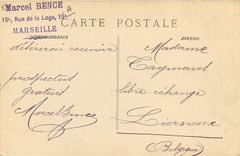 Marcel BENCE
15ᴬ, Rue de la Loge, 15ᴬ
MARSEILLE
CARTE POSTALE
CORRESPONDANCE
ADRESSE
désirerait recevoir
prospectus
gratuit
Marcel Bence
Madame
Taymans
libre-échange
Lierneux
(Belgique)